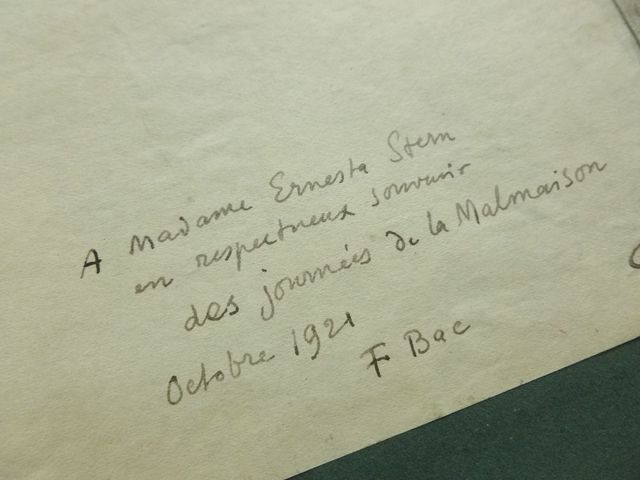 A Madame Ernesta Stern
en respectueux souvenir
des journées de la Malmaison
Octobre 1921
F Bac